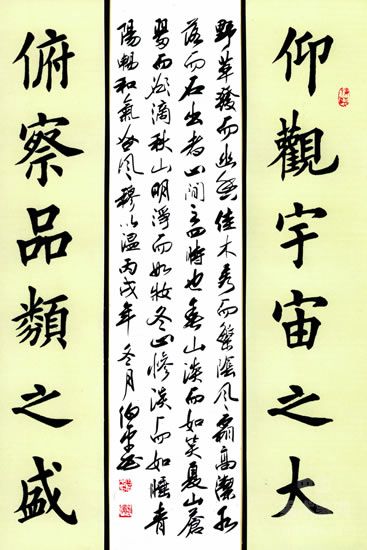 仰觀宇宙之大
野草發而幽香佳木秀而繁陰風霜高潔水
落而石出者山間之四時也春山淡而如笑夏山蒼
翠而欲滴秋山明淨而如妝冬山慘淡而如睡青
陽暢和氣谷風穆以溫丙戌年冬月
俯察品類之盛